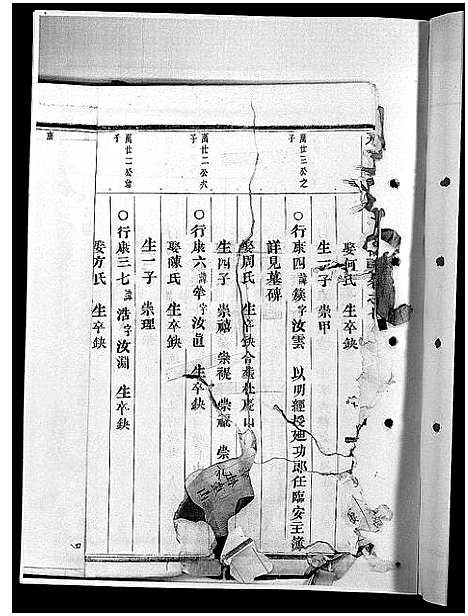 娶何氏 生卒缺
生一子 崇甲
萬廿三公之子
○行康四諱鎂字汝雲 以明經授廸功郎任臨安主簿
詳見墓碑
娶周氏 生卒缺合葬杜處山
生四子 崇禧 崇禔 崇禔 崇
萬廿二公六子
○行康六諱犖字汝直 生卒缺
娶陳氏 生卒缺
生一子 崇理
萬廿二公幼子
○行康三七諱浩字汝淵 生卒缺
娶方氏 生卒缺
四